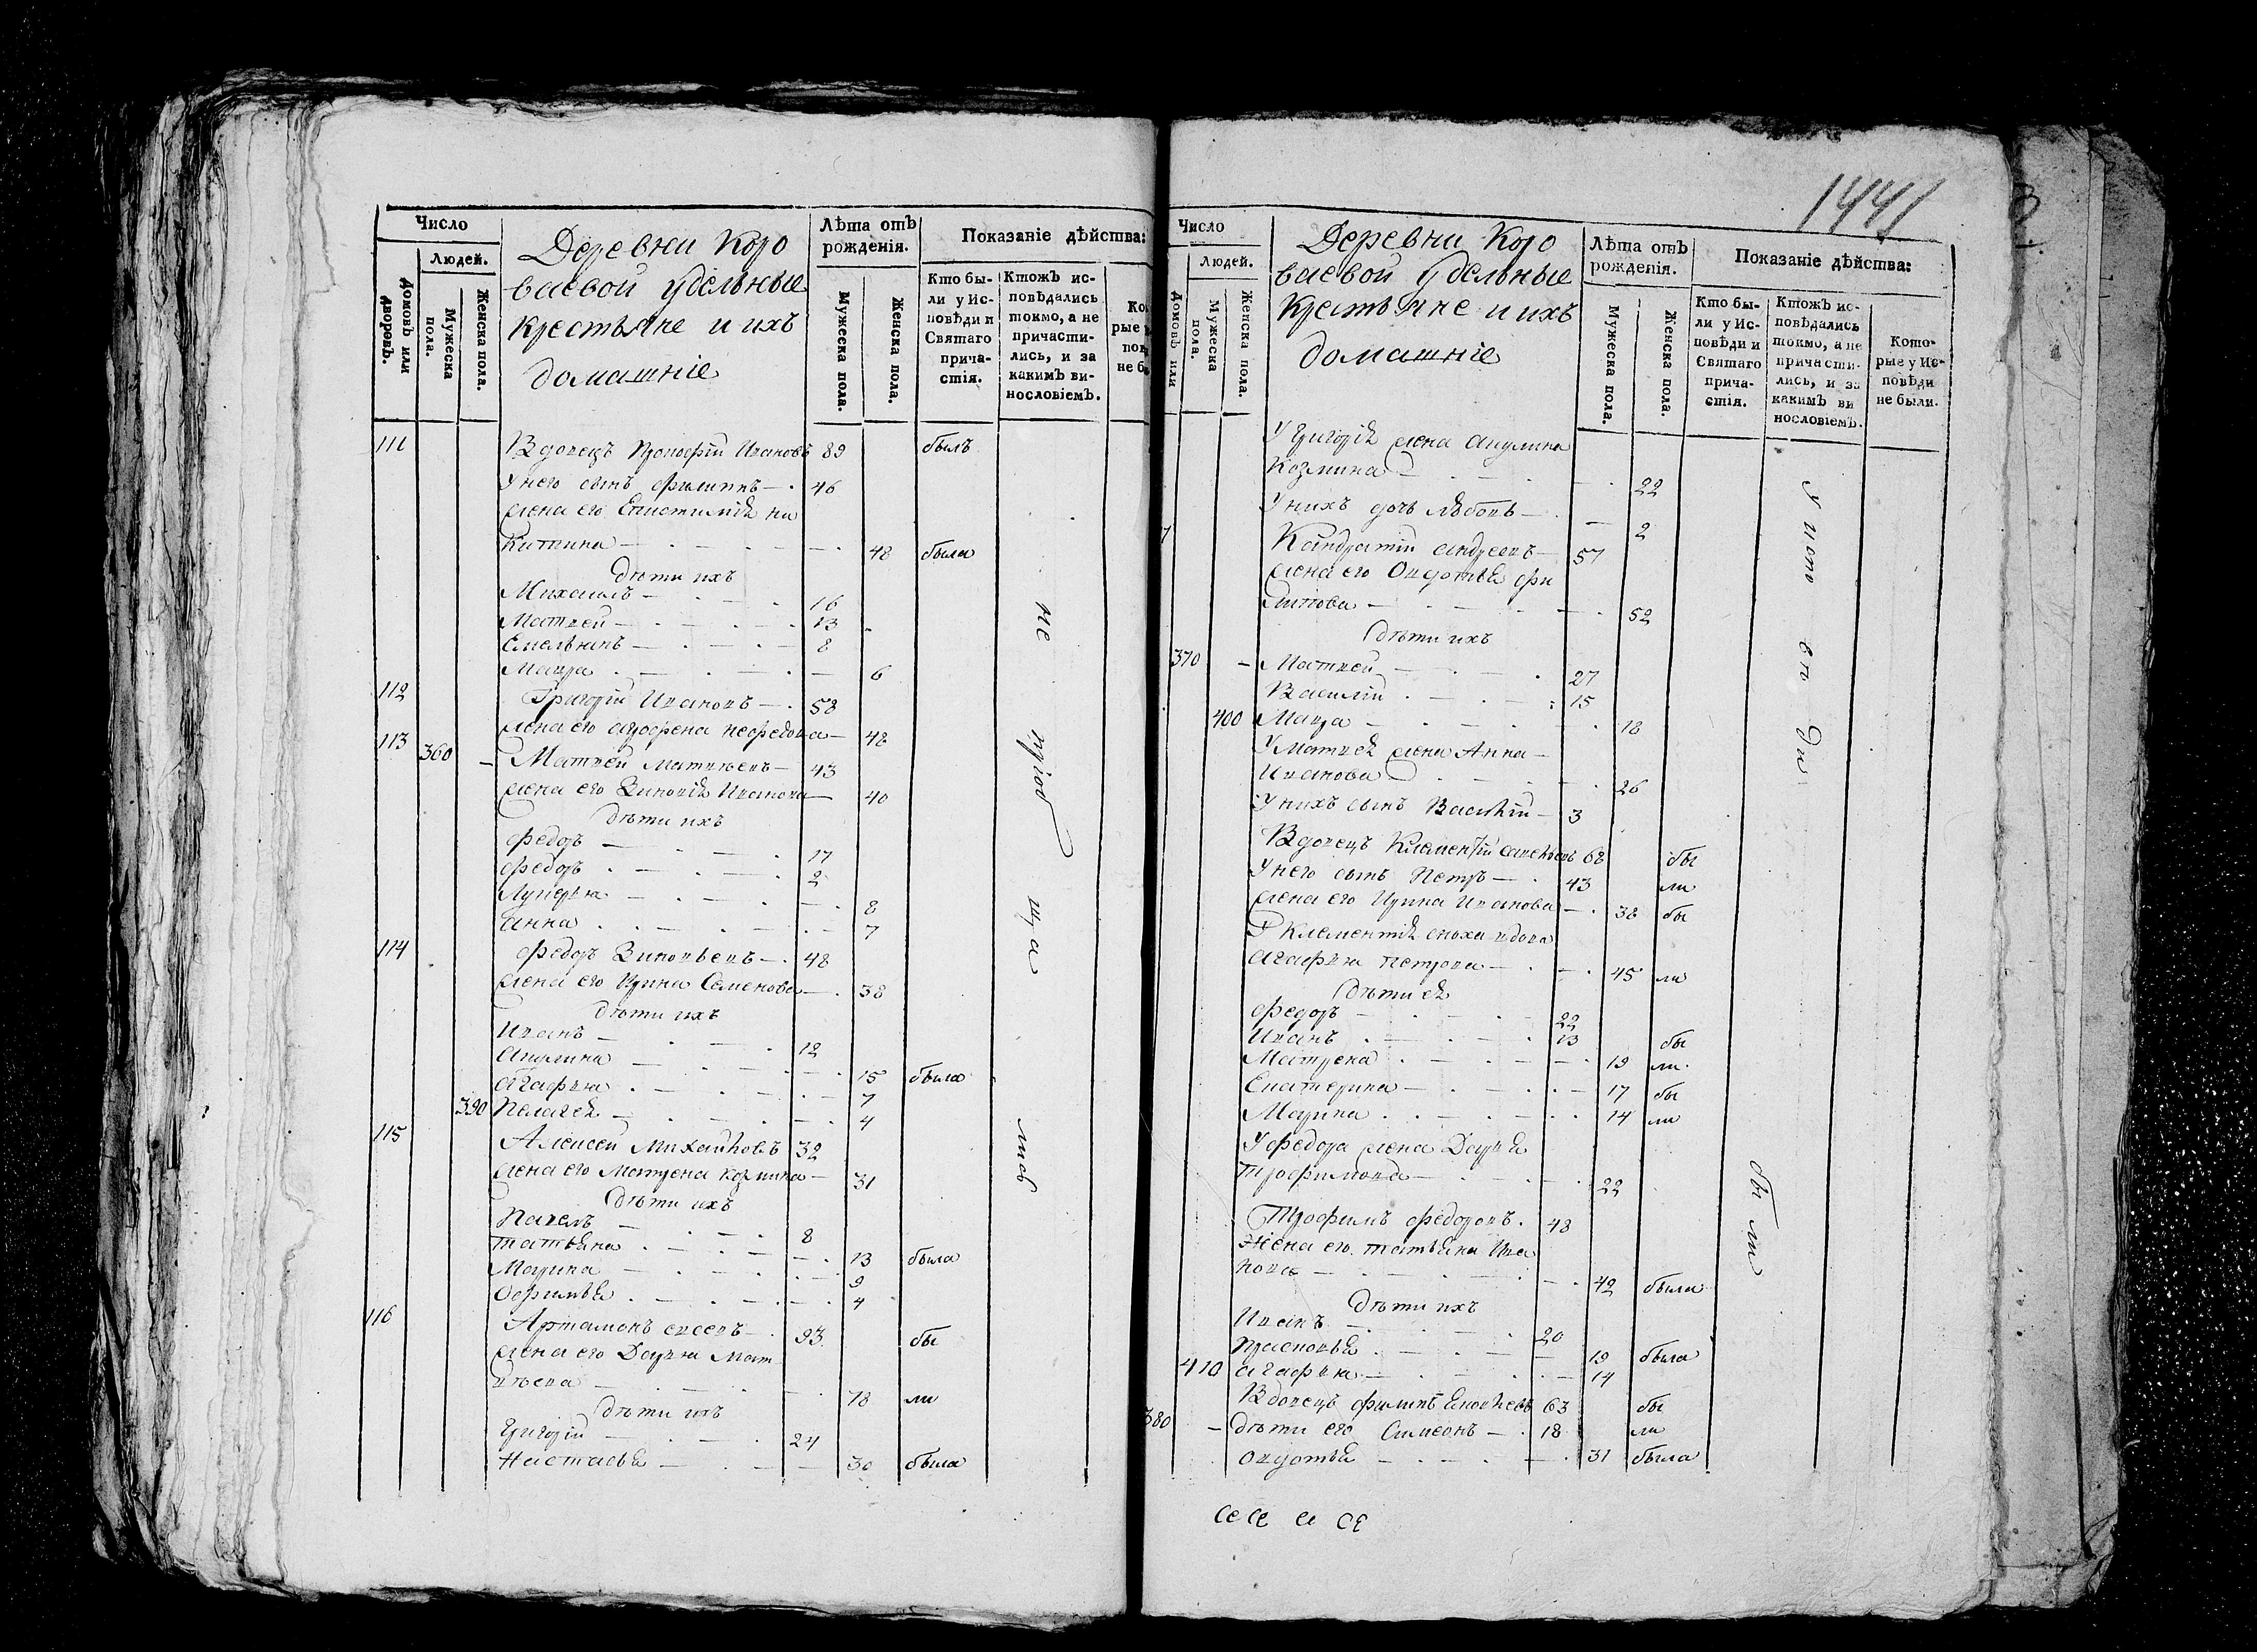 Число
Людей.
Домовъ или дворовъ.
Мужеска пола.
Женска пола.
Деревни Коро
ваевой удѣльные
крестьяне и ихъ
домашніе
Лѣта отъ рожденія.
Мужеска пола.
Женска пола.
Показаніе дѣйства:
Кто бы-
ли у Ис-
повѣди и
Святаго
прича-
стія.
Ктожъ ис-
повѣдались
токмо, а не
причасти-
лись, и за
какимъ ви-
нословіемъ.
111 Вдовецъ Прокофій Ивановъ 89 былъ
У него сынъ Филиппъ 46
жена его Епистимія Ни
китина 48 была
дѣти ихъ
Михаилъ 16
Матвей 13
Емельянъ 8
Мавра 6
112 Григорій Ивановъ 58
жена его Агрофена Нефедова 48
113 360 Матвей Матвѣевъ 43
жена его Зиновія Иванова 40
дѣти ихъ
Федоръ 17
Федоръ 2
Лукерья 8
Анна 7
114 Федоръ Зиновьевъ 48
жена его Ирина Семенова 38
дѣти ихъ
Иванъ 12
Акулина 15 была
Агафья 7
390 Пелагея 4
115 Алексей Михайловъ 32
жена его Матрена Козмина 31
дѣти ихъ
Павелъ 8
Татьяна 13 была
Марина 9
Офимья 4
116 Артамонъ Евсевъ 93 бы
жена его Дарья Мат
вѣева 78 ли
дѣти ихъ
Григорій 24
Настасья 30 была
не
ща
1441
Число
Людей.
Домовъ или
Мужеска пола.
Женска пола.
Деревни Коро
ваевой удѣльные
крестьяне и ихъ
домашніе
Лѣта отъ рожденія.
Мужеска пола.
Женска пола.
Показаніе дѣйства:
Кто бы-
ли у Ис-
повѣди и
Святаго
прича-
стія.
Ктожъ ис-
повѣдались
токмо, а не
причасти-
лись, и за
какимъ ви
нословіемъ.
Кото-
рые у Ис-
повѣди
не были.
У Григорія жена Акулина
Козмина 22
У нихъ дочь Любовь 2
Кандратій Андреевъ 57
жена его Овдотья Фи
липова 52
дѣти ихъ
370 Матвей 27
Василій 15
400 Мавра 18
У Матвея жена Анна
Иванова 26
У нихъ сынъ Василій 3
Вдовецъ Клементій Савельевъ 68 бы
У него сынъ Петръ 43 ли
жена его Ирина Иванова 38 бы
У Клементія сноха вдова
Агафья Петрова 45 ли
дѣти ея
Федоръ 22
Иванъ 13 бы
Матрена 19 ли
Екатерина 17 бы
Марина 14 ли
У Федора жена Дарья
Трофимова 22
Трофимъ Федоровъ 48
Жена его Татьяна Ива
нова 42 была
дѣти ихъ
Иванъ 20
Прасковья 19 была
410 Агафья 14
Вдовецъ Филипъ 63 бы
380 дѣти его Симеонъ 18 ли
Овдотья 31 была